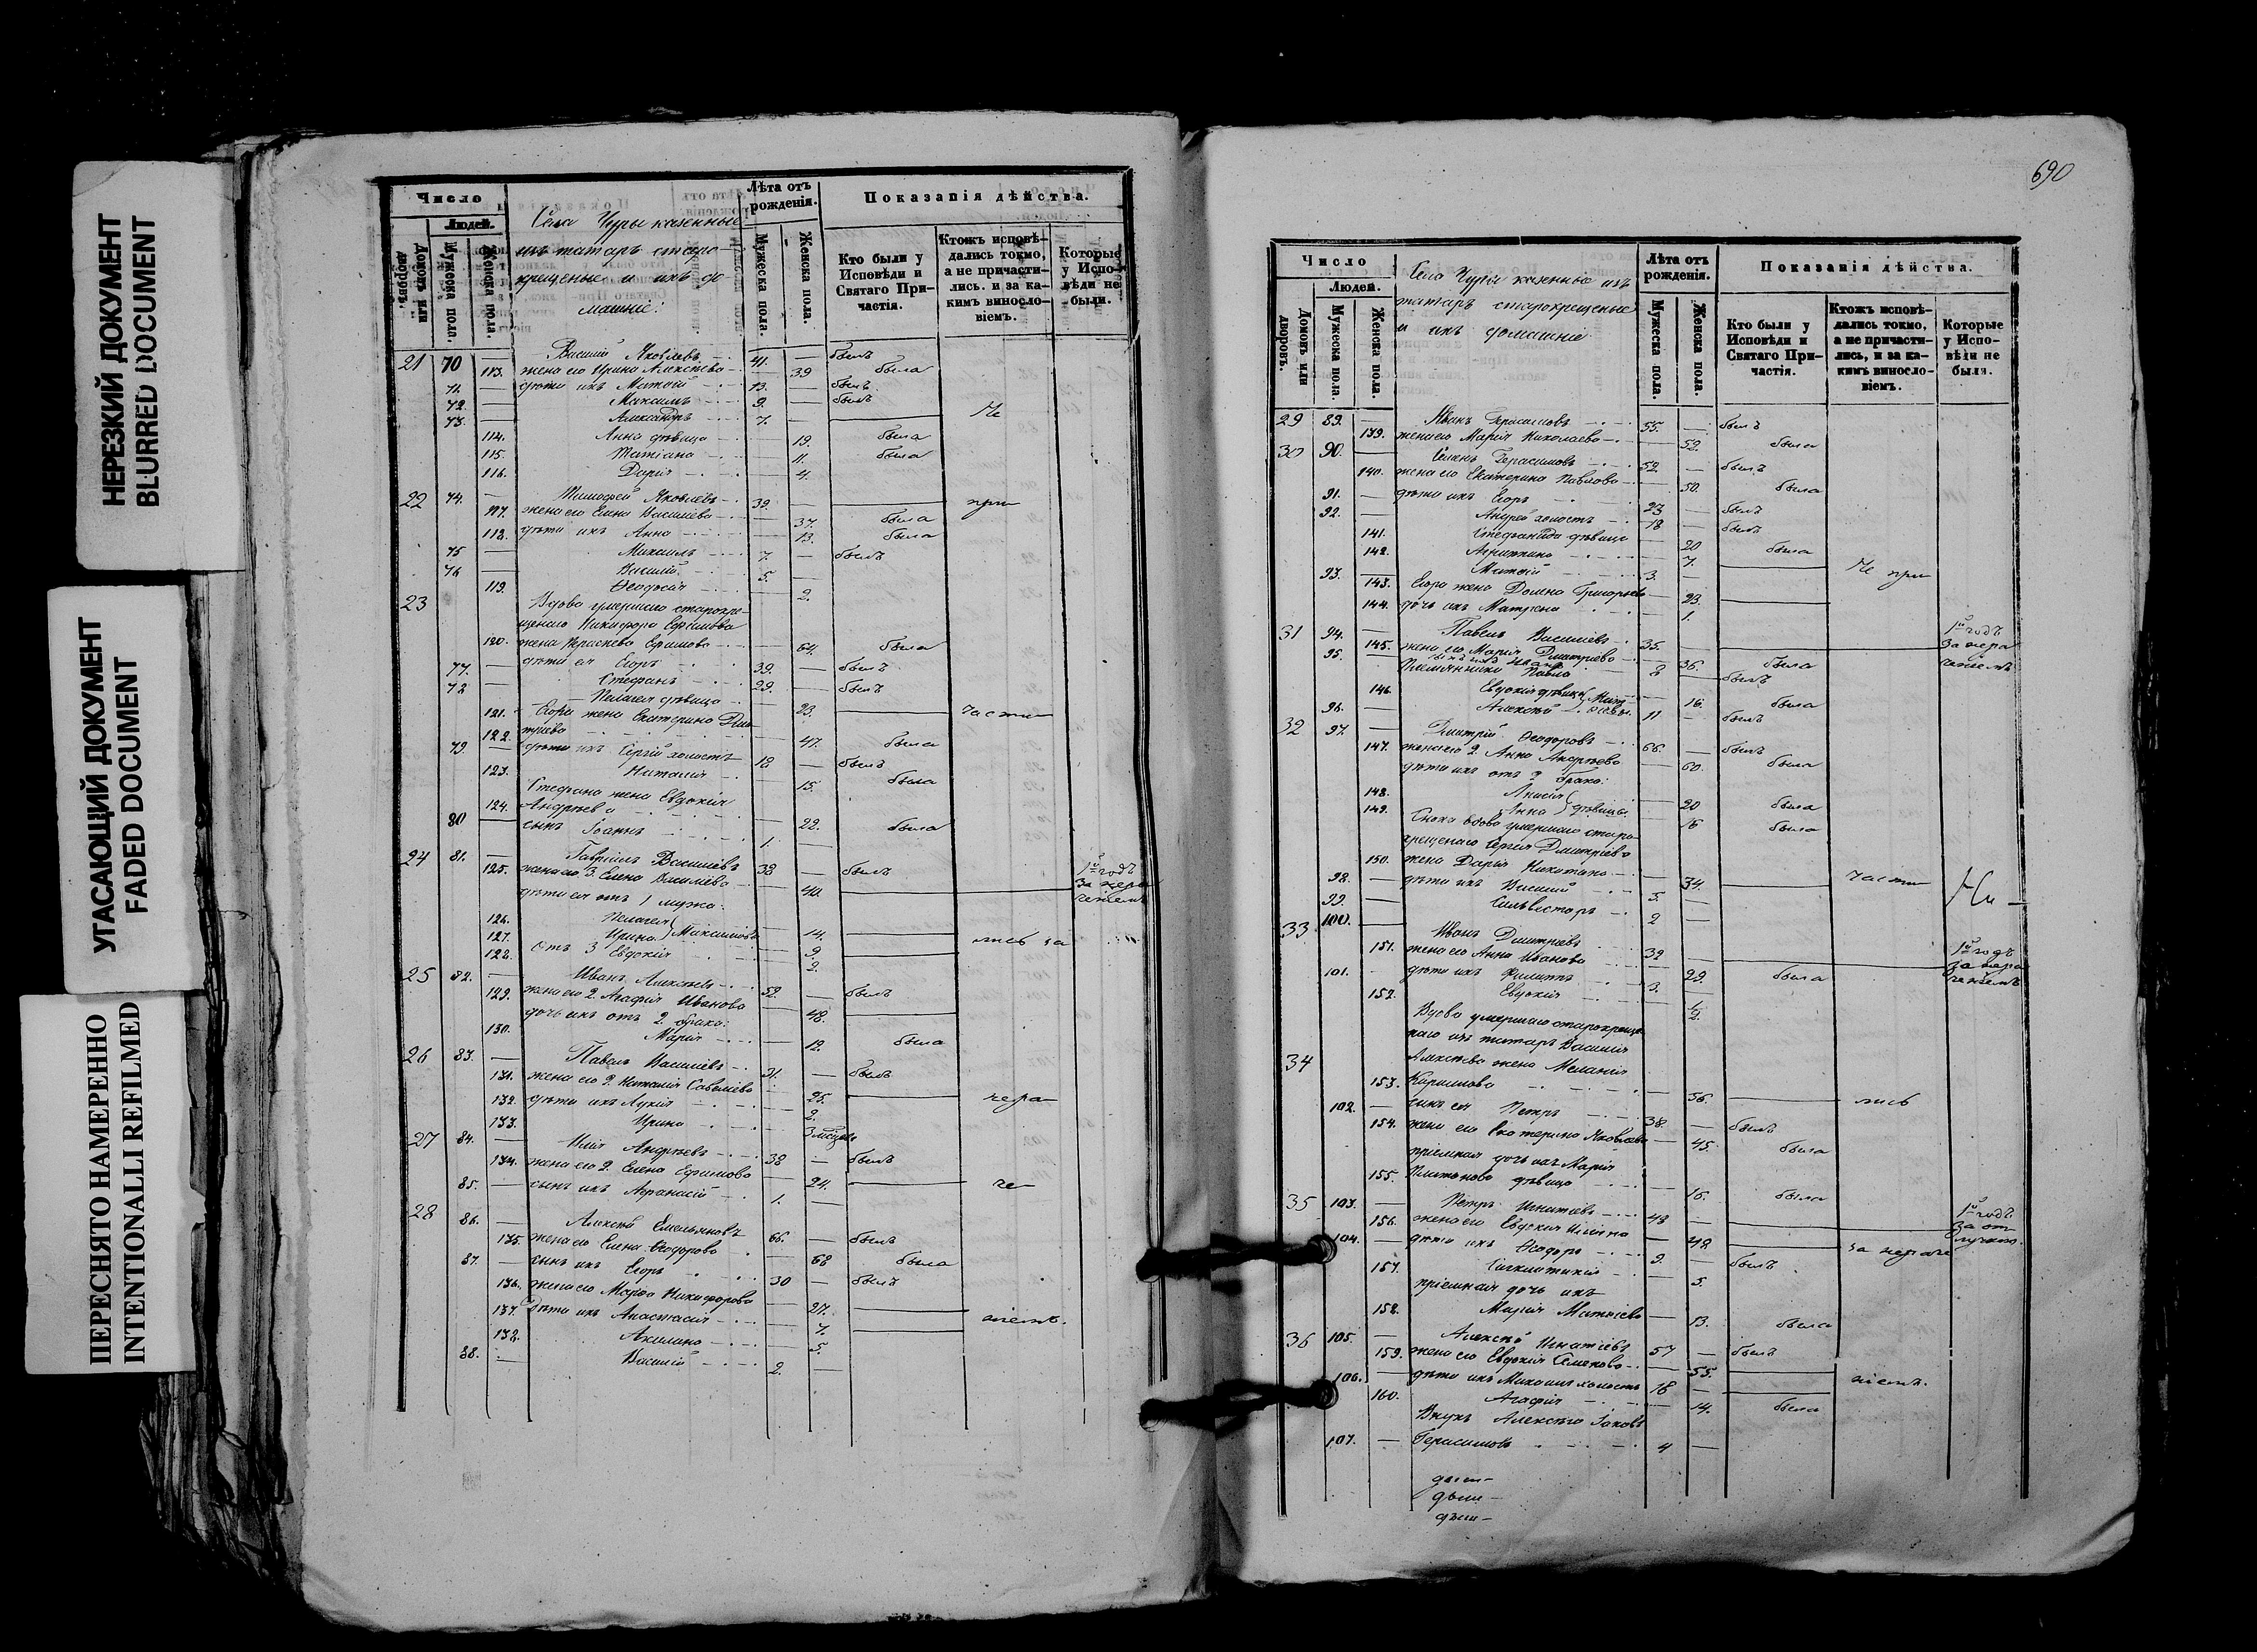 НЕРЕЗКИЙ ДОКУМЕНТ
BLURRED DOCUMENT
УГАСАЮЩИЙ ДОКУМЕНТ
FADED DOCUMENT
ПЕРЕСНЯТО НАМЕРЕННО
INTENTIONALLI REFILMED
Число
Людей.
Домовъ или дворовъ.
Мужеска пола.
Женска пола.
Села Чуры казенные
изъ татаръ старо-
крещеные и ихъ до
машніе:
Лѣта отъ рожденія.
Мужеска пола.
Женска пола.
Показанія дѣйства.
Кто были у Исповѣди и Святаго Причастія.
Ктожъ исповѣ-
дались токмо,
а не причасти-
лись. и за ка-
кимъ виносло-
віемъ.
Которые
у Испо-
вѣди не
были.
21 70 — Василій Яковлевъ 41. — былъ
113. жена его Ирина Алексѣева — 39 была
71. дѣти ихъ Матвій 13. — былъ
72. — Максимъ 9. — былъ
73. — Александръ 7. — Не
114. Анна дѣвица — 19. была
115. Татіана — 11. была
116. Дарія — 4.
22 74. — Тимофей Яковлевъ 39. — при
117. жена его Елена Василіева — 37. была
118. дѣти ихъ Анна — 13. была
75 — Михаилъ 7. — былъ
76 — Василій 5. —
119. Ѳеодосія 2.
23 Вдова умершаго старокре-
щенаго Никифора Ефимова
120. жена Параскева Ефимова — 64. была
77. — дѣти ея Егоръ 39. — былъ
78 — Стефанъ 29. — былъ
121. Пелагея дѣвица — 23. части
Егора жена Екатерина Дми
122. тріева — 47. была
79. — дѣти ихъ Сергій холостъ 18 — былъ
123. Наталія 15. была
Стефана жена Евдокія
124. Андреева — 22. была
80 — сынъ Іоаннъ 1. —
24 81. — Гавріилъ Василіевъ 38 — былъ
125. жена его 3. Елена Василіева — 40. 1й годъ за нера
дѣти ея отъ 1 мужа: ченіемъ
126. Пелагея — 14.
127. Ирина } Максимова — 9. лись за
128. отъ 3 Евдокія 2.
25 82. — Иванъ Алексѣевъ 52. — былъ
129. жена его 2. Агафія Иванова — 48.
дочь ихъ отъ 2. брака:
130. Марія — 12. была
26 83. — Павелъ Василіевъ 31. — былъ
131. жена его 2. Наталія Савеліева — 25. нера
132. дѣти ихъ Лукія — 2.
133. Ирина 3 мѣсяц.
27 84. — Илія Андреевъ 38 — былъ
134. жена его 2. Елена Ефимова — 24. че
85. — сынъ ихъ Афанасій 1. —
28 86. — Алексѣй Емельяновъ 66. — былъ
135. жена его Елена Ѳеодорова — 68 была
87. — сынъ ихъ Егоръ 30 — былъ
136. жена его Марфа Никифорова — 27. ніемъ.
137. Дѣти ихъ Анастасія — 7.
138. Акилина — 5.
88. — Василій 2.
690
Число
Людей.
Домовъ или дворовъ.
Мужеска пола.
Женска пола.
Села Чуры казенные изъ
татаръ старокрещеные
и ихъ домашніе
Лѣта отъ рожденія.
Мужеска пола.
Женска пола.
Показанія дѣйства.
Кто были у Исповѣди и Святаго При-
частія.
Ктожъ исповѣ-
дались токмо,
а не причасти-
лись, и за ка-
кимъ виносло-
віемъ.
Которые
у Испо-
вѣди не
были.
29 89. — Иванъ Герасимовъ 55. — былъ
139. жена его Марія Николаева — 52. была
30 90. — Семенъ Герасимовъ 52. — былъ
140. жена его Екатерина Павлова — 50. была
91. — дѣти ихъ Егоръ 23 — былъ
92. — Андрей холостъ 18 — былъ
141. Стефанида дѣвица — 20 была
142. Агрипина 7.
93. — Матвій 3. — Не при
143. Егора жена Домна Григорьева — 23.
144. дочь ихъ Матрена 1.
31 94. — Павелъ Василіевъ 35. 1й годъ за нера
145. жена его Марія Дмитріева — 36. была ченіемъ
95. сынъ ихъ Иванъ 8 — былъ
Племянники Павла
146. Евдокія дѣвица — 16. была
96. — Алексѣй 11 — былъ
32 97. — Дмитрій Ѳеодоровъ 66. — былъ
147. жена его 2. Анна Андреева — 60. была
дѣти ихъ отъ 2 брака:
148. Анисія — 20 была
149. Анна } дѣвицы — 16 была
Сноха вдова умершаго старо-
крещенаго Сергія Дмитріева
150. жена Дарія Никитина — 34. части
98. — дѣти ихъ Василій 5. —
99. — Сильвестръ 2 —
33 100. — Иванъ Дмитріевъ 32 1й годъ за нера
151. жена его Анна Иванова — 29. была ченіемъ
101. — дѣти ихъ Филиппъ 3. —
152. Евдокія
Вдова умершаго старокреще-
наго изъ татаръ Василія
34 Алексѣева жена Меланія
153. Кирилова — 56. лись
102. — сынъ ея Петръ 38. — былъ
154. жена его Екатерина Яковлева — 45. была
пріемная дочь ихъ Марія
155. Платонова дѣвица — 16. была
35 103. — Петръ Игнатіевъ 48 — 1й годъ за от
156. жена его Евдокія Ильина — 48 за нераче лучкою.
104. — дѣти ихъ Ѳеодоръ 9. — былъ
157. 5.
пріемная дочь ихъ
158. Марія Матвіева — 13. была
36 105. — Алексѣй Игнатіевъ 57 — былъ
159. жена его Евдокія Семенова — 55. ніемъ.
106. — дѣти ихъ Михаилъ холостъ 18 —
160. Агафія — 14. была
Внукъ Алексѣя Іаковъ
107. — Герасимовъ 4 —